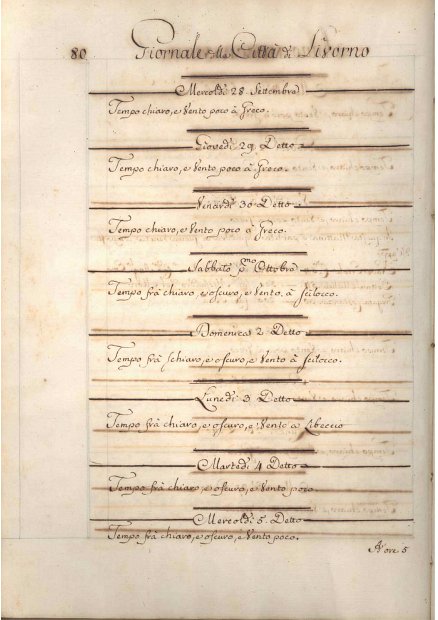 80 Giornale della Città di Livorno
Mercoldì 28 Settembre
Tempo chiaro, e Vento poco à Greco.
Giovedì 29 Detto
Tempo chiaro, e Vento poco à Greco.
Venardì 30 Detto
Tempo chiaro, e Vento poco à Greco.
Sabbato pmo Ottobre
Tempo frà chiaro, e oscuro, e Vento, à Scilocco.
Domenica 2 Detto
Tempo frà schiaro, e oscuro, e Vento à Scilocco.
Lunedì 3 Detto
Tempo frà chiaro, e oscuro, e Vento a Libeccio
Martedì 4 Detto
Tempo frà chiaro, e oscuro, e Vento poco
Mercoldì 5 Detto
Tempo frà chiaro, e oscuro, e Vento poco.
ore 5